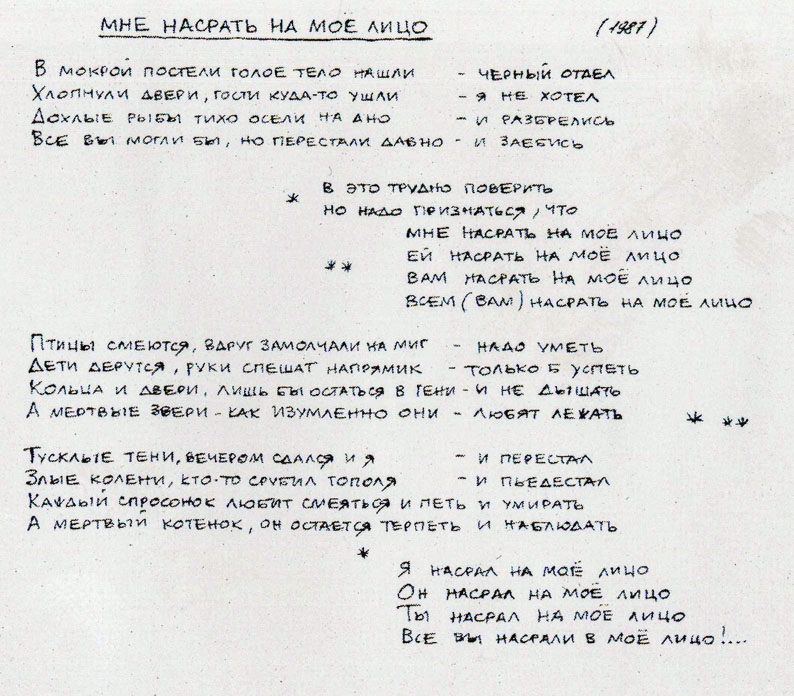 МНЕ НАСРАТЬ НА МОЁ ЛИЦО (1987)
В МОКРОЙ ПОСТЕЛИ ГОЛОЕ ТЕЛО НАШЛИ - ЧЕРНЫЙ ОТДЕЛ
ХЛОПНУЛИ ДВЕРИ, ГОСТИ КУДА-ТО УШЛИ - Я НЕ ХОТЕЛ
ДОХЛЫЕ РЫБЫ ТИХО ОСЕЛИ НА ДНО - И РАЗБРЕЛИСЬ
ВСЕ ВЫ МОГЛИ БЫ, НО ПЕРЕСТАЛИ ДАВНО - И ЗАЕБИСЬ
* В ЭТО ТРУДНО ПОВЕРИТЬ
НО НАДО ПРИЗНАТЬСЯ, ЧТО
МНЕ НАСРАТЬ НА МОЁ ЛИЦО
** ЕЙ НАСРАТЬ НА МОЁ ЛИЦО
ВАМ НАСРАТЬ НА МОЁ ЛИЦО
ВСЕМ (ВАМ) НАСРАТЬ НА МОЁ ЛИЦО
ПТИЦЫ СМЕЮТСЯ, ВДРУГ ЗАМОЛЧАЛИ НА МИГ - НАДО УМЕТЬ
ДЕТИ ДЕРУТСЯ, РУКИ СПЕШАТ НАПРЯМИК - ТОЛЬКО Б УСПЕТЬ
КОЛЬЦА И ДВЕРИ, ЛИШЬ БЫ ОСТАТЬСЯ В ТЕНИ - И НЕ ДЫШАТЬ
А МЕРТВЫЕ ЗВЕРИ - КАК ИЗУМЛЕННО ОНИ - ЛЮБЯТ ЛЕЖАТЬ * **
ТУСКЛЫЕ ТЕНИ, ВЕЧЕРОМ СДАЛСЯ И Я - И ПЕРЕСТАЛ
ЗЛЫЕ КОЛЕНИ, КТО-ТО СРУБИЛ ТОПОЛЯ - И ПЬЕДЕСТАЛ
КАЖДЫЙ СПРОСОНОК ЛЮБИТ СМЕЯТЬСЯ И ПЕТЬ И УМИРАТЬ
А МЕРТВЫЙ КОТЕНОК, ОН ОСТАЕТСЯ ТЕРПЕТЬ И НАБЛЮДАТЬ
*
Я НАСРАЛ НА МОЁ ЛИЦО
ОН НАСРАЛ НА МОЁ ЛИЦО
ТЫ НАСРАЛ НА МОЁ ЛИЦО
ВСЕ ВЫ НАСРАЛИ В МОЁ ЛИЦО!...